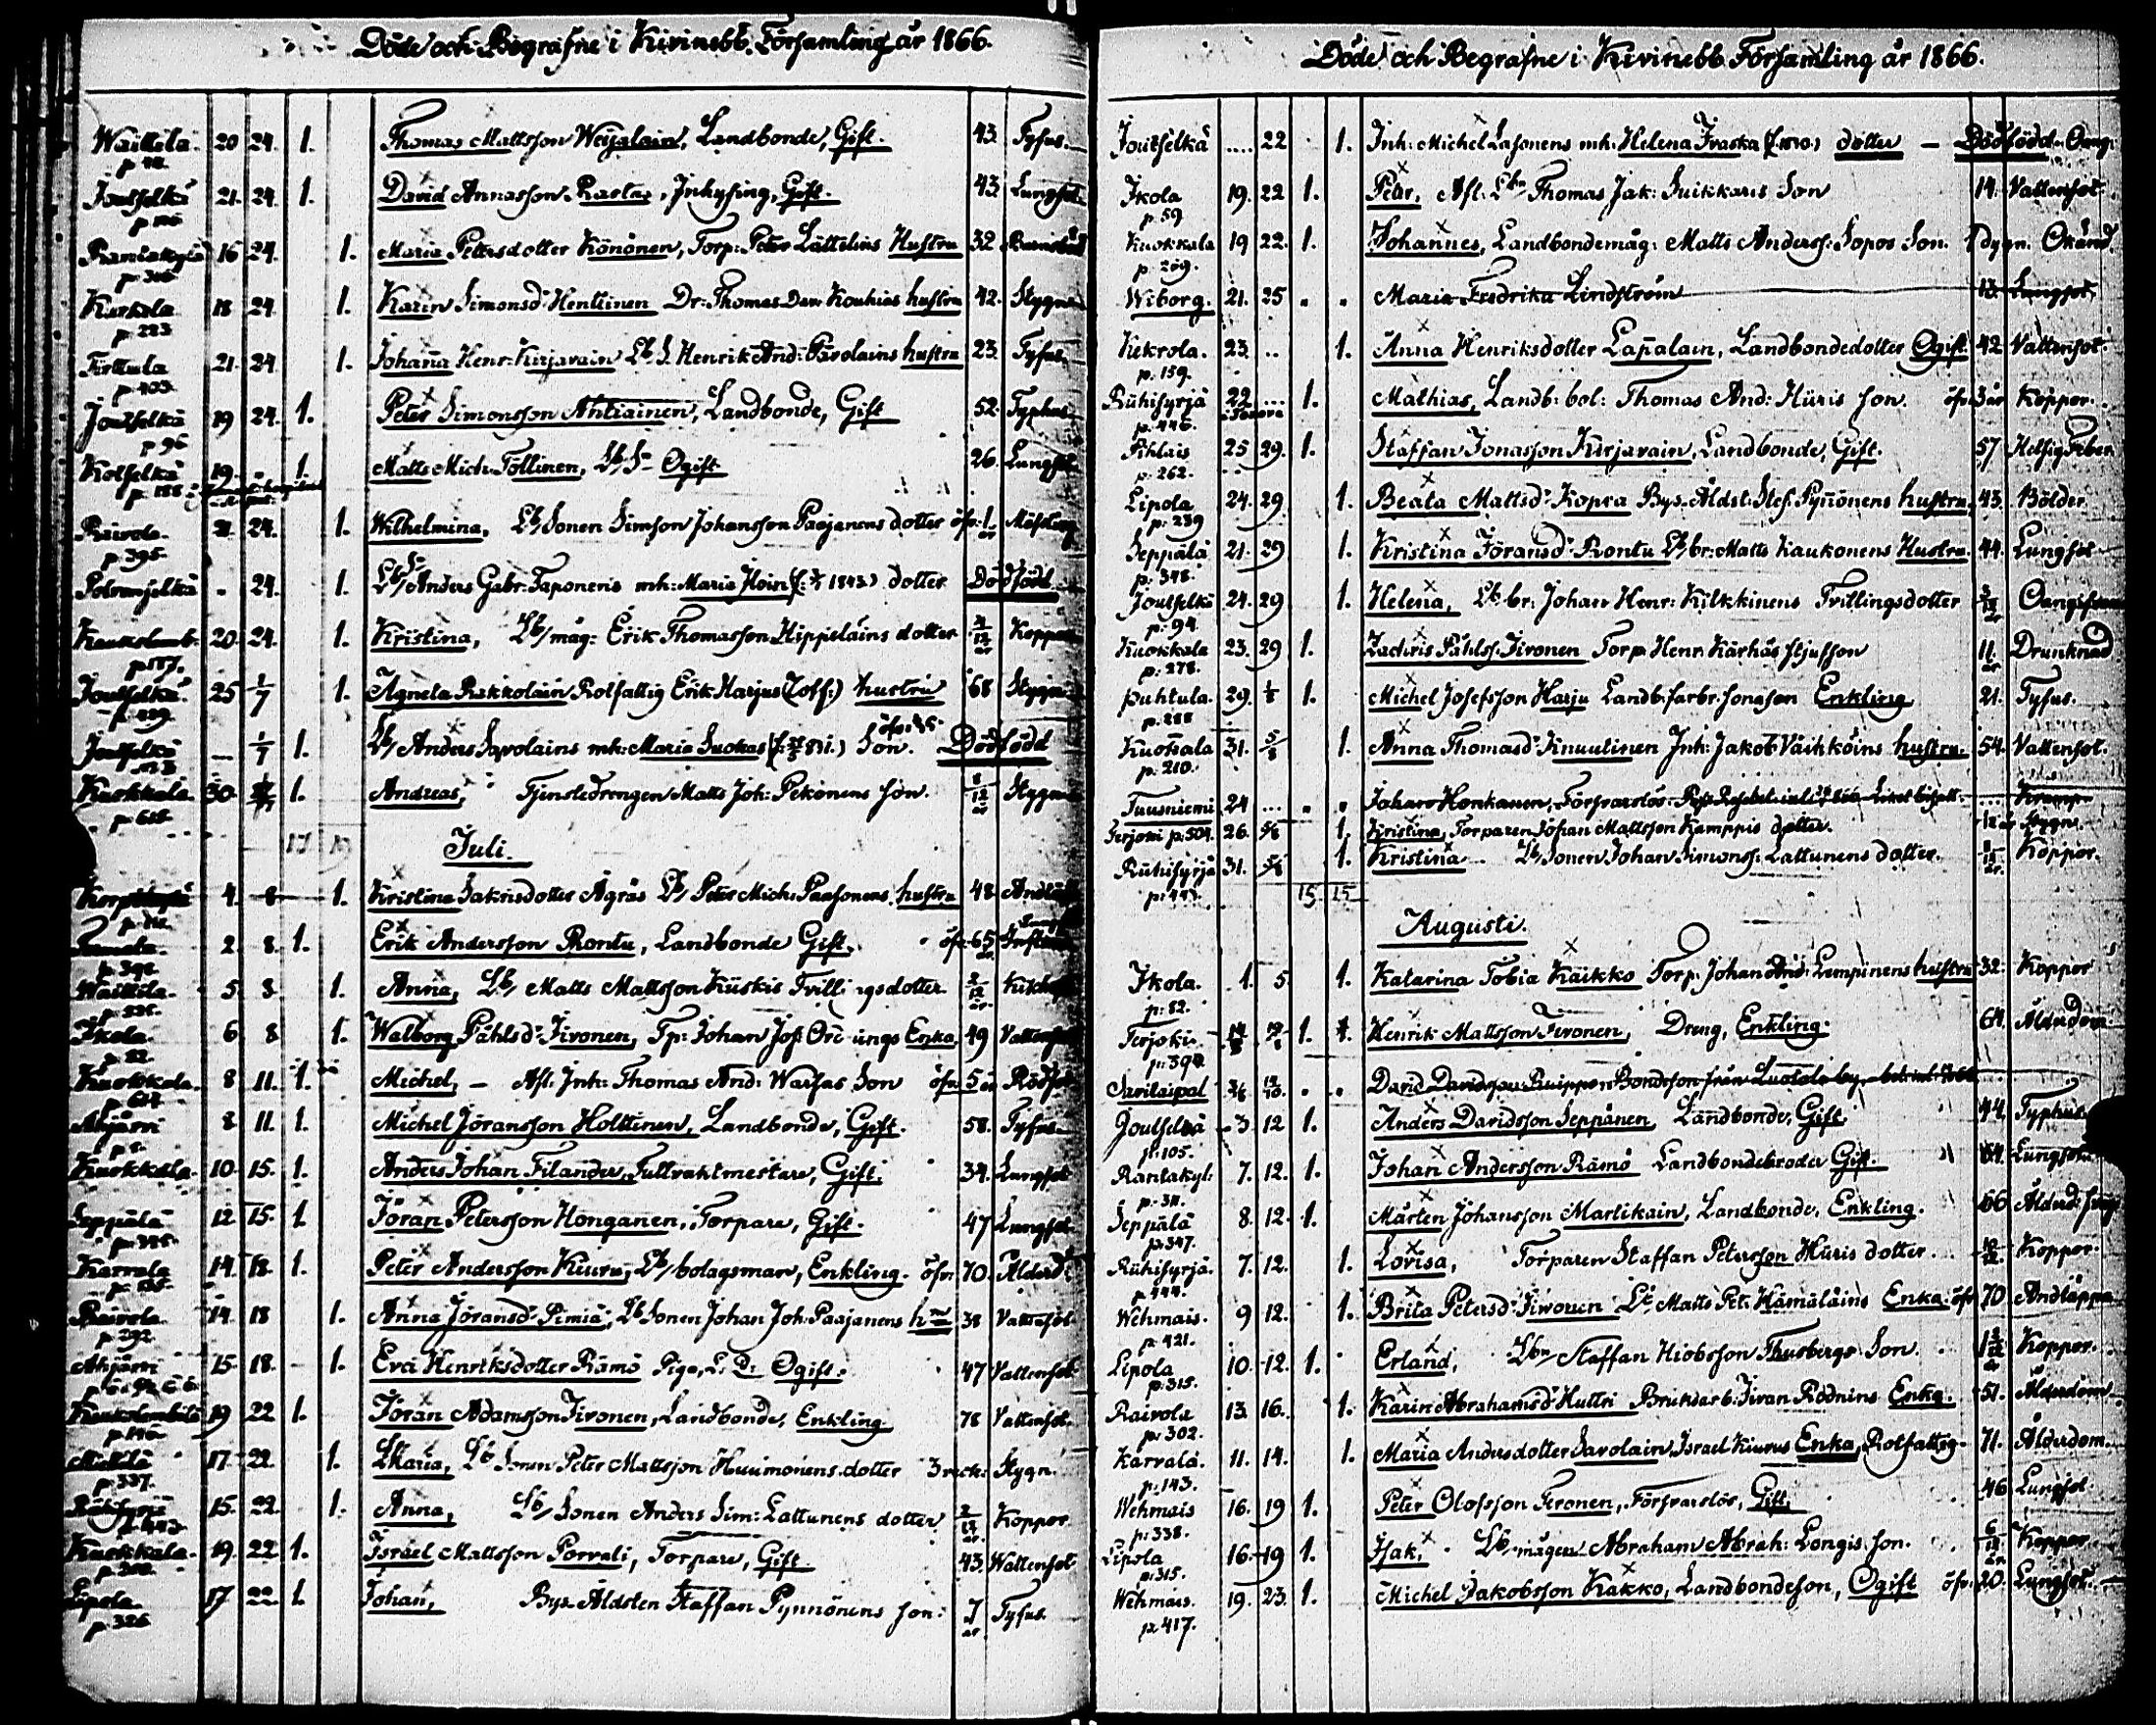 Döde och Begrafne i Kivinebb. Församling år 1866.
Waittila. 20 24. 1. Thomas Mattsson Weijalain, Landbonde, Gift. 43 Tyfus.
Joutselkä 21. 24 1. David Annasson Rasta, Inhysing, Gift. 43 Lungsot.
p. 106
Rantakylä 16 24. 1. Maria Petersdotter Könönen, Torp: Peter Lätteläins Hustru 32
p. 306
Kuokkala 18 24 1. Karin Simonsd: Henttinen Dr: Thomas Dav Koukias hustru 42. Stygn
p. 223
Tirttula 21. 24. 1. Johana Henr: Kirjavain Lb. S. Henrik And: Pavolains hustru 23. Tyfus.
p. 403.
Joutselkä 19 24. 1. Peter Simonsson Ahtiainen, Landbonde, Gift 52. Typhus
p. 96
Kotselkä 19. 1. Matts Mich. Töllinen, Lb. Sn Ogift. 26. Lungsot
p. 188
Raivola 24. 1. Wilhelmina, Lb Sonen Simson Johansson Paajanens dotter öfr: 1. år Mässling
p. 395.
Polvenselkä 24. 1. Lb/ Anders Gabr. Taponens mh: Maria Ihoin (f: 1843.) dotter Dödfödd
Kaukolemb. 20. 24. 1. Kristina, Lb/måg: Erik Thomasson Hippeläins dotter 4/12 år Koppor
p. 157.
Joutselkä 25 1/7 1. Agneta Rekkolain Rotfattig Erik Harjus (Loff:) hustru 68 Stygn
Joutselkä — 1/7 1. Lb/ Anders Savolains mh: Maria Suokas Son. Dödfödd
Kuokkala. 30. 1. Andreas, Tjenstedrengen Matts Joh: Pekonens son. 8/12 år Stygn
17 19
Juli.
4. 8 1. Kristina Jakobsdotter Ägräs Lb/ Peter Mich: Paasonens hustru 48 Andtäppa
2. 8. 1. Erik Andersson Rontu, Landbonde Gift. öfr. 65
p. 392
Waittila. 5. 8 1. Anna, Lb/ Matts Mattsson Kiiskis Trillingsdotter. 2/12 år Kikhosta
Ikola 6. 8 1. Walborg Påhlsd: Iivonen, Tp: Johan Jos: Enka, 49 Vattensot
p. 82
Kuokkala. 8 11. 1. Michel, — Afl. Inh: Thomas And: Warfas Son öfr. 5 år Rödsot
Ahjärvi 8 11. 1. Michel Jöransson Holttinen, Landbonde, Gift. 58. Tyfus.
Kuokkala. 10 15. 1. Anders Johan Filander, Tullvaktmestare, Gift. 34. Lungsot
Seppälä 12 15. 1 Jöran Petersson Honganen, Torpare, Gift. 47 Lungsot
Karvala 14. 18. 1. Peter Andersson Kiuru, Lb/bolagsman, Enkling. öfr. 70. Ålderd:
Raivola. 14. 18 1. Anna Jöransd: Pimiä, Lb Sonen Johan Joh. Paajanens h:u 38 Vattensot
p. 292.
Ahjärvi 15. 18. 1. Eva Henriksdotter Rämö Piga, L. D: Ogift. 47 Vattensot
Kaukolembilä 19 22 1. Jöran Adamsson Iivonen, Landbonde, Enkling. 78 Vattensot.
p. 146
17. 22. 1. Maria, Lb Sonen Peter Mattsson Huumonens dotter 3 veck. Stygn.
p. 337.
15. 22. 1. Anna, Lb/ Sonen Anders Sim: Lattunens dotter 2/12 år Koppor.
p. 443
Kuokkala. 19. 22 1. Israel Mattsson Porvali, Torpare, Gift. 43. Wattensot
Lipola 17 22. 1. Johan, Bys. Äldsten Staffan Pynnönens son: 7 år Tyfus.
p. 326
Döde och Begrafne i Kivinebb Församling år 1866.
Joutselkä .... 22 1. Inh: Michel Lasonens mh: Helena Iraska (f. 1830.) dotter — Dödfödd.
Ikola 19. 22 1. Peter, Afl. Lbn Thomas Jak: Suikkaris Son 14. Vattensot
p. 59
Kuokkala 19 22. 1. Johannes, Landbondemåg: Matts Anderss: Sopos Son. 1 dygn. Okänd.
p. 209.
Wiborg. 21. 25 " " Maria Fredrika Lindström 13. Lungsot
Kekrola. 23. .. 1. Anna Henriksdotter Lapalain, Landbondedotter Ogift. 42 Vattensot.
p. 159.
Riihisyrjä 22 ... 1. Mathias, Landb: bol: Thomas And: Hüris son. öfr. 3 år Koppor.
p. 446.
Pihlais 25 29. 1. Staffan Jonasson Kirjavain, Landbonde, Gift. 57. Hetsig Feber.
p. 262.
Lipola 24. 29 1. Beata Mattsd: Kopra Bys. Äldst: Stef: Pynnönens hustru, 43. Bölder.
p. 239
Seppälä 21. 29 1. Kristina Jöransd: Rontu Lb br: Matts Kaukonens Hustru 44. Lungsot
p. 348.
Joutselkä 24. 29 1. Helena, Lb: br: Johan Henr: Kilkkinens Trillingsdotter
p. 94.
Kuokkala 23. 29 1. Zachris Påhlss: Iivonen Torp. Henr. Kärhäs stjufson 11. år Drunknad
p. 278.
Puhtula. 29. 1/8 1. Michel Josefsson Harju Landb. farbr. sonason Enkling 21. Tyfus.
p. 288
Kuokkala 31. 5/8 1. Anna Thomasd: Knuutinen Inh: Jakob Väikköins hustru. 54. Vattensot.
p. 210.
Tuusniemi 24 ... " " Johan Honkanen, Försvarslös:
Terjoki p. 504. 26. 5/8 1. Kristina, Torparen Johan Mattsson Kamppis dotter. Stygn.
Riihisyrjä 31. 5/8 1. Kristina Lb Sonen Johan Simonss: Lattunens dotter. Koppor.
p. 443. 15 15
Augusti.
Ikola. 1. 5. 1. Katarina Tobia Käikko Torp. Johan And: Lempinens hustru 32. Koppor
p. 82.
Terjoki 1. Henrik Mattsson Iivonen, Dreng, Enkling. 64. Ålderdom
p. 390.
Savitaipal " " David Davidsson
Joutselkä 3. 12 1. Anders Davidsson Seppänen Landbonde, Gift. 44. Typhus
p. 105.
Rantakyl: 7. 12. 1. Johan Andersson Rämö Landbondebroder Gift. 64. Lungsot
p. 311.
Seppälä 8. 12. 1. Mårten Johansson Martikain, Landbonde, Enkling. 66
p. 347.
Riihisyrjä. 7. 12. 1. Lovisa, Torparen Staffan Petersson Hüris dotter. Koppor.
p. 444.
Wehmais. 9 12. 1. Brita Petersd: Iivonen Lb Matts Pet: Hämäläins Enka. öfr 70 Andtäppa
p. 421.
Lipola 10. 12. 1. Erland, Lbn Staffan Hiobsson Thusbergs Son. Koppor.
p. 315.
Raivola 13. 16. 1. Karin Abrahamsd: Huttri Bruksarb. Iivan Rödnins Enka. 51. Ålderdom
p. 302.
Karvala. 11. 14. 1. Maria Andersdotter Savolain, Israel Kiurus Enka, Rotfattig. 71. Ålderdom.
p. 143.
Wehmais 16. 19 1. Peter Olofsson Tironen, Försvarslös, Gift. 46 Lungsot.
p. 338.
Lipola 16. 19 1. Isak, Lb/mågen Abraham Abrah: Longis son. 6/12 år Koppor.
p. 315.
Wehmais. 19. 23. 1. Michel Jakobsson Kakko, Landbondeson, Ogift öfr. 20. Lungsot.
p. 417.